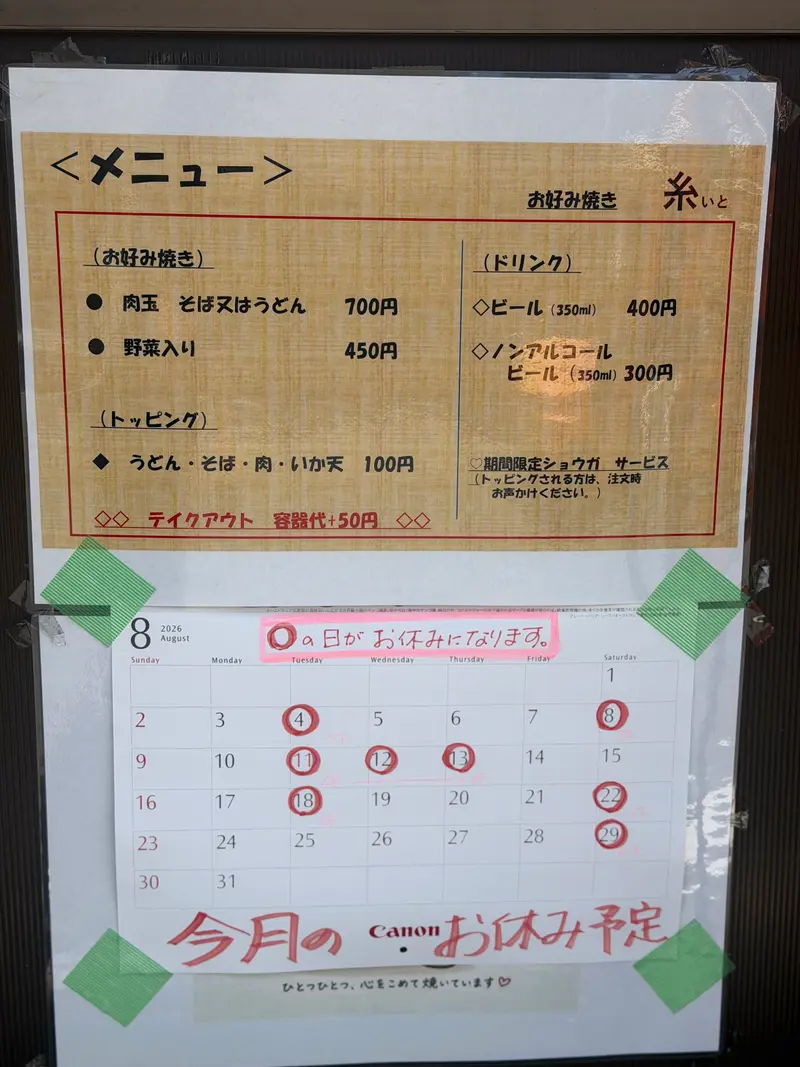 <メニュー>
お好み焼き 糸いと
(お好み焼き)
● 肉玉 そば又はうどん 700円
● 野菜入り 450円
(トッピング)
◆ うどん・そば・肉・いか天 100円
◇◇ テイクアウト 容器代+50円 ◇◇
(ドリンク)
◇ビール(350ml) 400円
◇ノンアルコール
ビール(350ml) 300円
♡期間限定ショウガ サービス
(トッピングされる方は、注文時
お声かけください。)
8 2026 August
○の日がお休みになります。
Sunday Monday Tuesday Wednesday Thursday Friday Saturday
1
2 3 4 5 6 7 8
9 10 11 12 13 14 15
16 17 18 19 20 21 22
23 24 25 26 27 28 29
30 31
今月の Canon お休み予定
ひとつひとつ、心をこめて焼いています♡